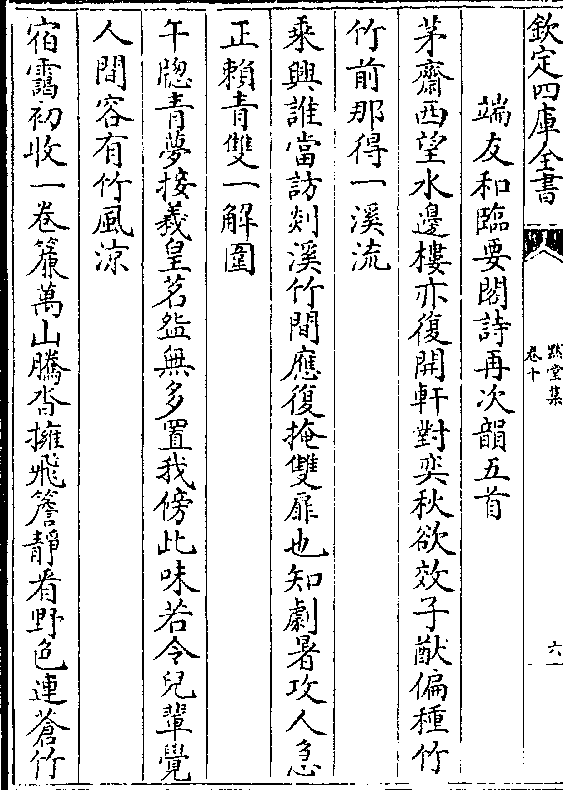 欽定四庫全書
黙堂集
卷十
六
端友和臨要閣詩再次韻五首
茅齋西望水邊樓亦復開軒對奕秋欲效子猷偏種竹
竹前那得一溪流
乘興誰當訪剡溪竹間應復掩雙扉也知劇暑攻人急
正賴青雙一解圍
午牕青夢接羲皇茗盌無多置我傍此味若令兒輩覺
人間容有竹風涼
宿靄初收一卷簾萬山騰沓擁飛簷靜看野色連蒼竹